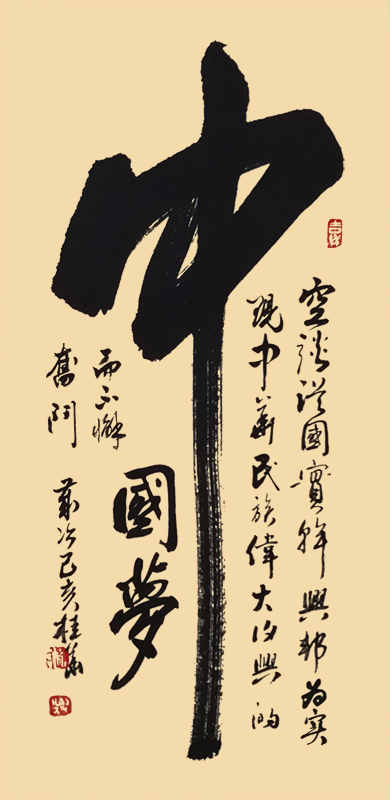 空談誤國實幹興邦為实
現中華民族偉大復興的
中
國夢
而不懈
奮鬥
歲次己亥桂